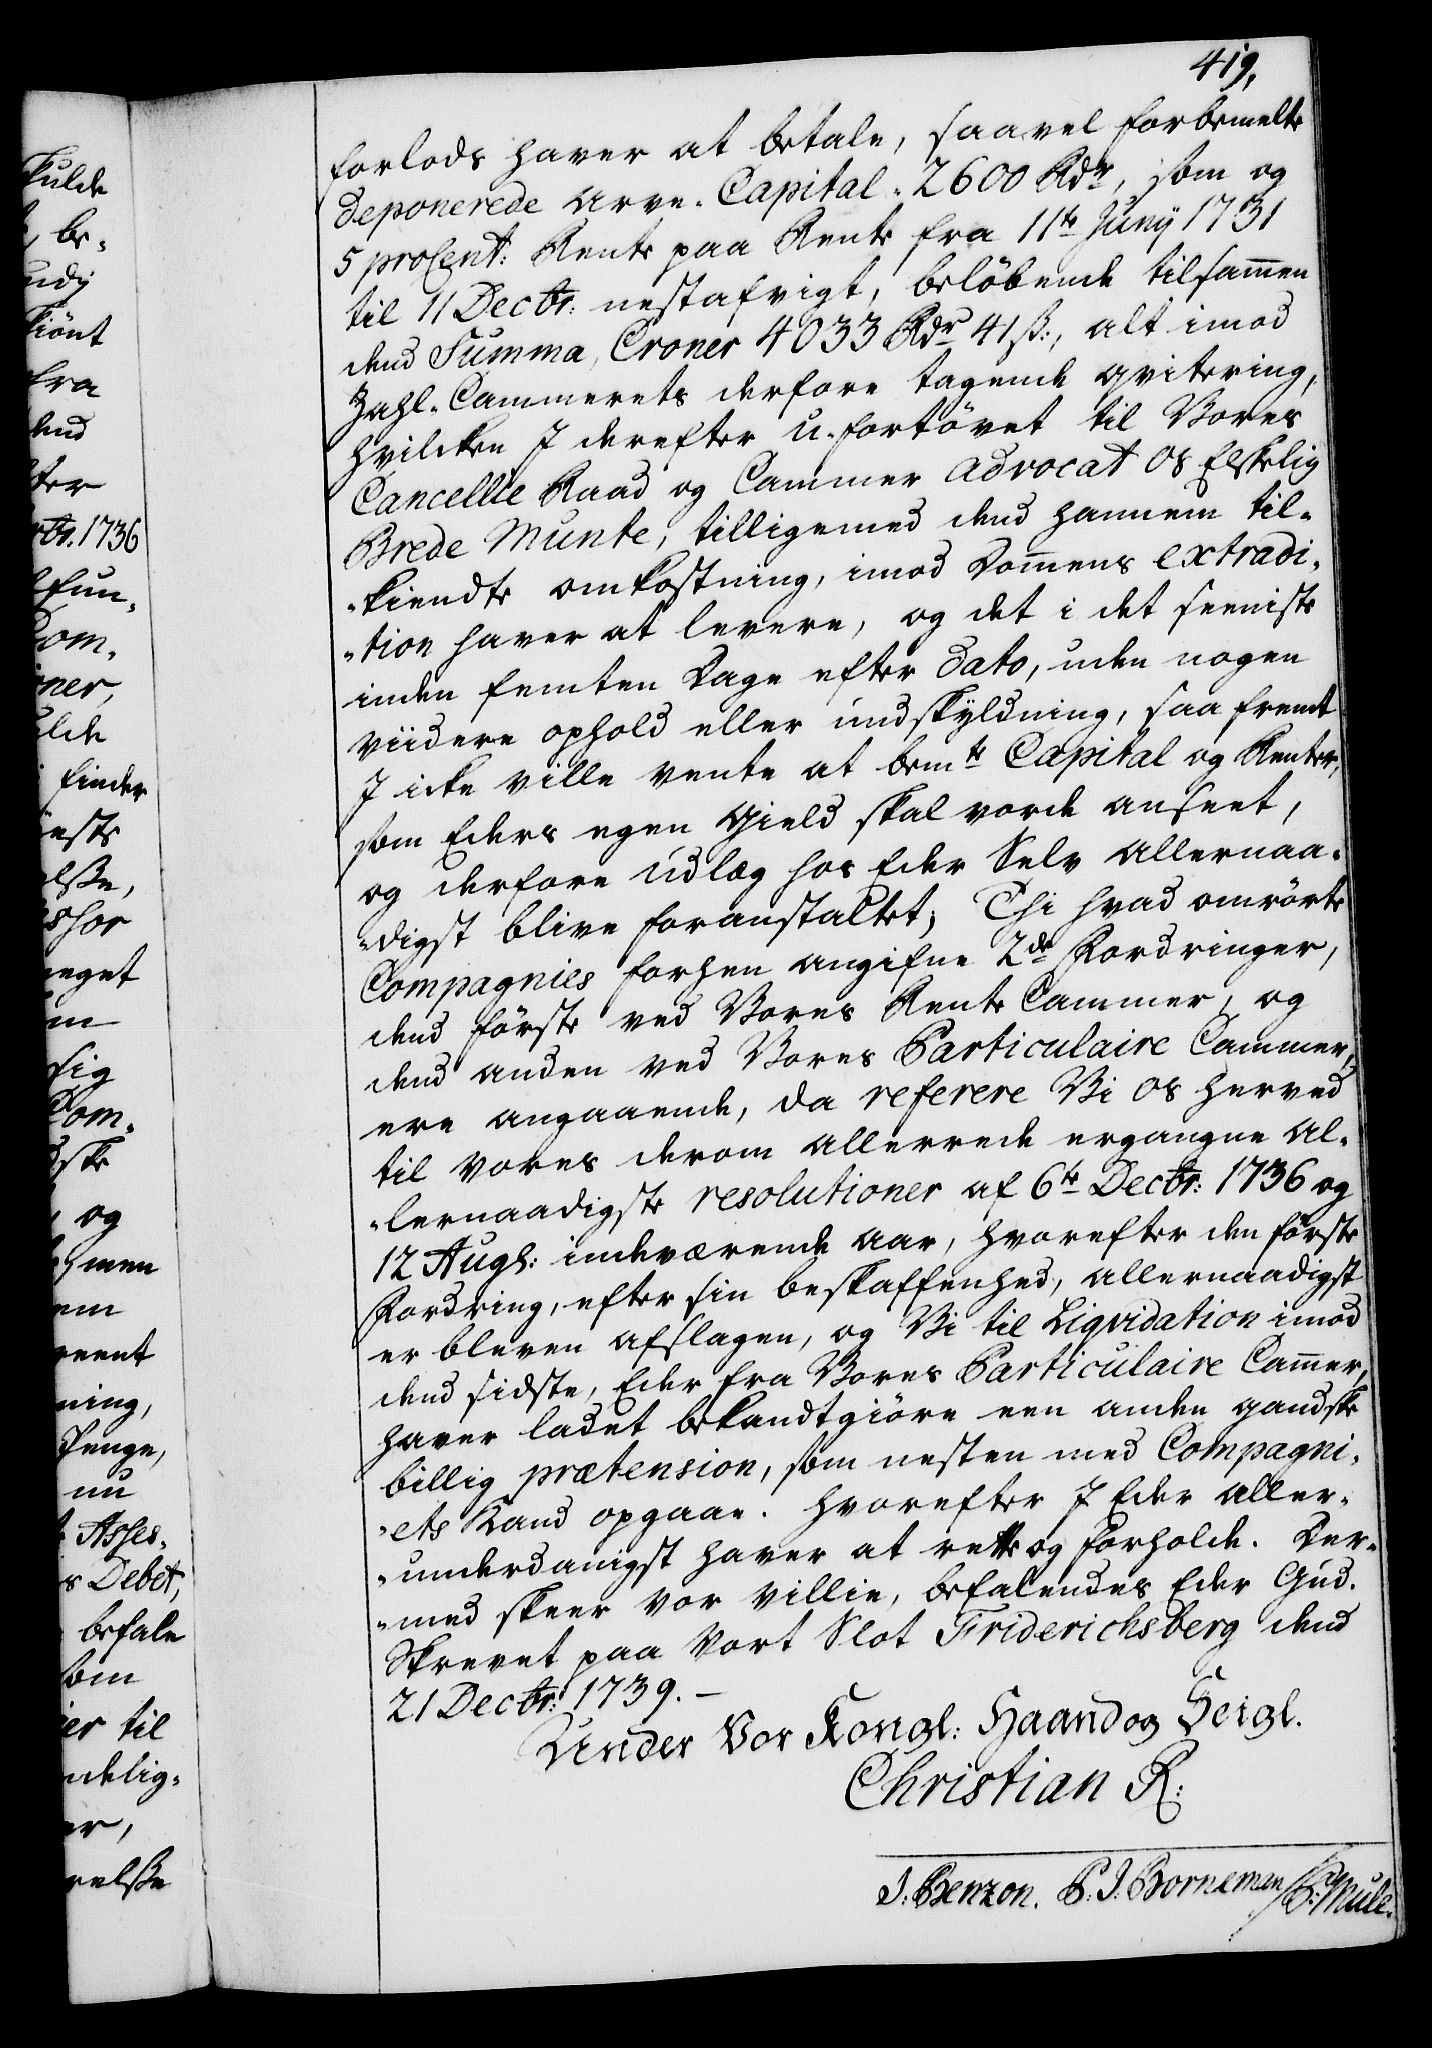 419,
forlods haver at betale, saavel forbemelte
deponerede arve-Capital-2600 Rdr, som og
5 proCent: Rente paa Rente fra 11te Junÿ 1731
til 11 Decbr: nestafvigt, belöbende tilsam̄en
dend Summa, Croner 4033 Rdr 41 ß:, alt imod
Zahl-Cammerets derfore tagende qvitering,
hvilcken I derefter u-fortövet til Vores
Cancellie Raad og Cammer advocat os Elskelig
Brede Munte, tilligemed dend hannem til-
-kiendte omkostning, imod Dom̄ens extradi-
-tion haver at levere, og det i det seeniste
inden femten Dage efter dato, uden nogen
viidere ophold eller undskÿldning, saa fremt
I icke ville vente at bemte Capital og Renter,
som Eders egen Gield skal vorde anseet,
og derfore udlæg hos Eder Selv allernaa-
-digst blive foranstaltet; Thi hvad omrörte
Compagnies forhen angifne 2de Fordringer,
dend förste ved Vores Rente Cammer, og
dend anden ved Vores Particulaire Cammer,
ere angaaende, da referere Vi os herved
til Vores derom allerrede ergangne al-
-lernaadigste resolutioner af 6te Decbr: 1736 og
12 Augs: indeværende aar, hvorefter den förste
Fordring, efter sin beskaffenhed, allernaadigst
er bleven afslagen, og Vi til Liqvidation imod
dend sidste, Eder fra Vores Particulaire Cam̄er,
haver ladet bekandtgiöre een anden gandske
billig prætension, som nesten med Compagni-
-ets Kand opgaae. Hvorefter I Eder aller-
-underdanigst haver at rette og forholde. Der-
-med skeer vor villie, befalendes Eder Gud.
Skrevet paa Vort Slot Friderichsberg dend
21 Decbr: 1739. –
Under Vor Kongl: Haand og Seigl.
Christian R:
J: Benzon. P. J: Borneman / P: Mule.
skulde
, be-
udj
kiönt
fra
dend
ter
tbr. 1736
fun-
Com-
ner,
ulde
finder
enste
else,
shor
meget
m
sig
Com-
ske
og
men
em
reent
ning,
Penge,
nu
Asses-
s Debet,
befale
som
er til
ndelig-
er,
relse